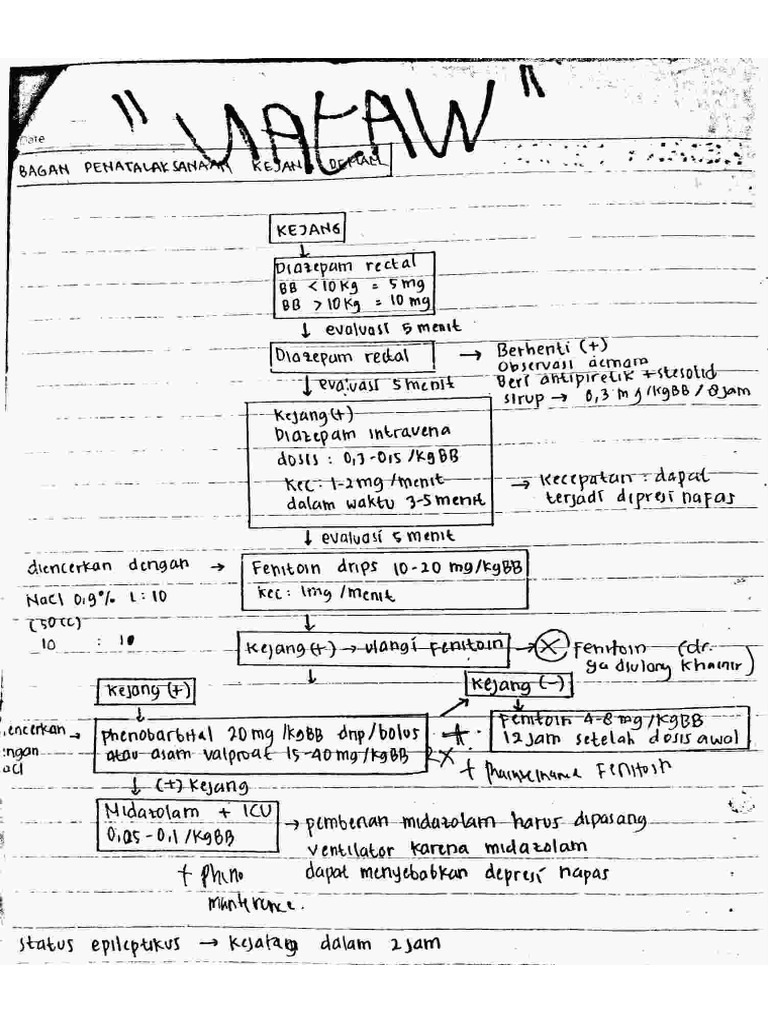 "VATAW"
Date
BAGAN PENATALAKSANAAN KEJANG DEMAM
KEJANG
Diazepam rectal
BB < 10 Kg = 5 mg
BB > 10 Kg = 10 mg
↓ evaluasi 5 menit
Diazepam rectal →
Berhenti (+)
Observasi
Beri antipiretik + stesolid
sirup → 0,3 mg/kgBB/8jam
↓ evaluasi 5 menit
Kejang (+)
Diazepam intravena
dosis : 0,3-0,5 /KgBB
Kec : 1-2 mg /menit
dalam waktu 3-5 menit
→ Kecepatan : dapat
terjadi dipresi nafas
↓ evaluasi 5 menit
diencerkan dengan →
NaCl 0,9% 1:10
(50cc)
10 : 10
Fenitoin drips 10-20 mg/kgBB
Kec : 1mg /menit
Kejang (+) → ulangi Fenitoin → X Fenitoin (dr.
ga diulang
Kejang (+)
Kejang (-)
encerkan →
ngan
acl
phenobarbital 20 mg /kgBB drip/bolus
atau asam valproat 15-40 mg /KgBB
2x
Fenitoin 4-8 mg /KgBB
12 jam setelah dosis awal
+ Fenitoin
↓ (+) Kejang
Midazolam + ICU
0,05-0,1 /KgBB
→ pemberian midazolam harus dipasang
ventilator karena midazolam
dapat menyebabkan depresi napas
+ Pheno
status epileptikus → Kejatang dalam 2 jam